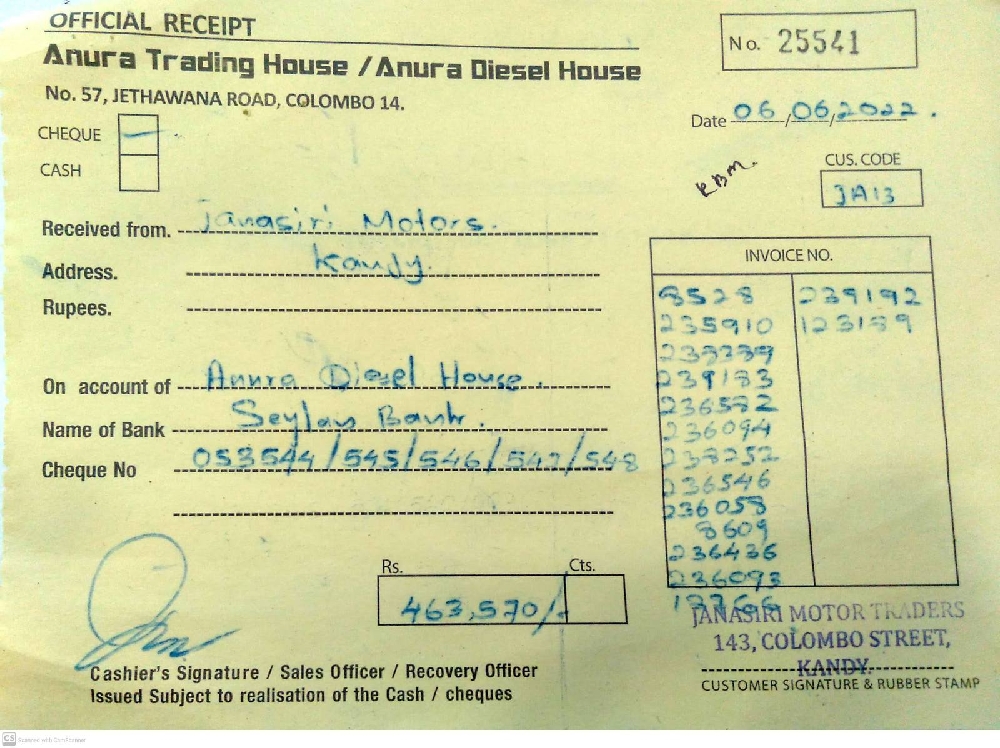 OFFICIAL RECEIPT
Anura Trading House / Anura Diesel House
No. 57, JETHAWANA ROAD, COLOMBO 14.
No. 25541
Date 06/06/2022.
CHEQUE –
CASH
KBM.
CUS. CODE
JA13
Received from. Janasiri Motors.
Address. Kandy.
Rupees.
On account of Anura Diesel House.
Name of Bank Seylan Bank.
Cheque No 053544/545/546/547/548
INVOICE NO.
8528 239192
235910 123189
239183
236582
236094
238252
236546
236058
8609
236436
236093
Rs. Cts.
463,570/-
JANASIRI MOTOR TRADERS
143, COLOMBO STREET,
KANDY.
CUSTOMER SIGNATURE & RUBBER STAMP
Cashier's Signature / Sales Officer / Recovery Officer
Issued Subject to realisation of the Cash / cheques
CS Scanned with CamScanner